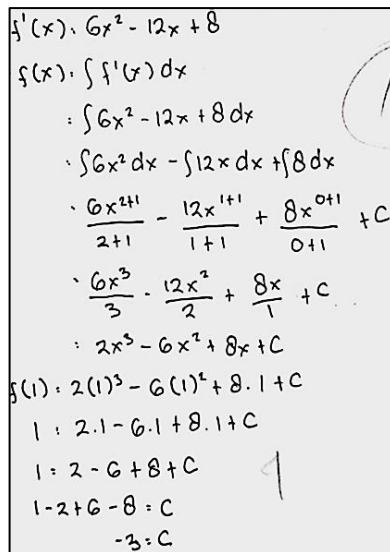 f'(x) : 6x² - 12x + 8
f(x) : ∫ f'(x) dx
: ∫ 6x² - 12x + 8 dx
: ∫ 6x² dx - ∫ 12x dx + ∫ 8 dx
: 6x²⁺¹/2+1 - 12x¹⁺¹/1+1 + 8x⁰⁺¹/0+1 + C
: 6x³/3 - 12x²/2 + 8x/1 + C
: 2x³ - 6x² + 8x + C
f(1) : 2(1)³ - 6(1)² + 8.1 + C
1 : 2.1 - 6.1 + 8.1 + C
1 : 2 - 6 + 8 + C
1 - 2 + 6 - 8 : C
-3 : C